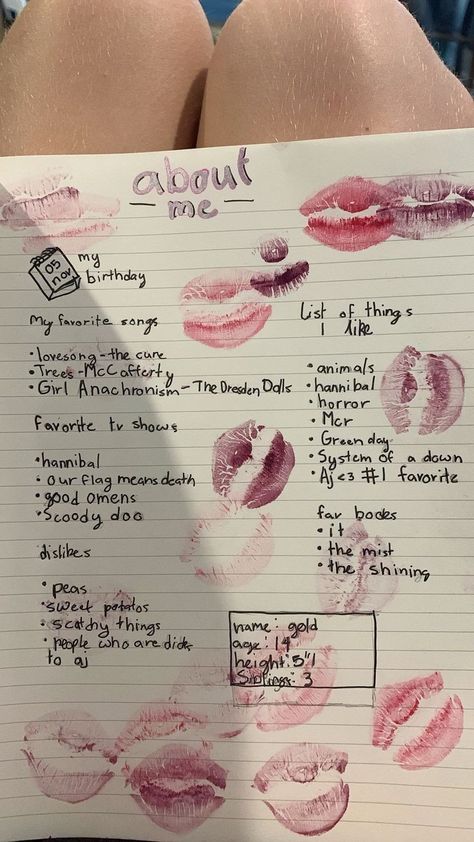 about
me
05
nov
my
birthday
My favorite songs
• lovesong-the cure
• Trees-McCafferty
• Girl Anachronism-The Dresden Dolls
favorite tv shows
• hannibal
• our flag means death
• good omens
• Scoody doo
dislikes
• peas
• sweet potatos
• scatchy things
• people who are dicks
to aj
List of things
I like
• animals
• hannibal
• horror
• Mcr
• Greenday
• System of a down
• Aj<3 #1 favorite
fav books
• it
• the mist
• the shining
name: gold
age:
height: 5"1
Siblings: 3